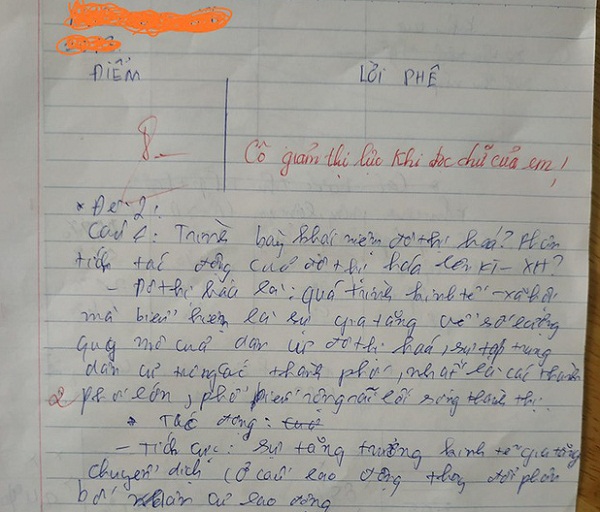 ĐIỂM LỜI PHÊ
8.
Cô giảm thị lực khi đọc chữ của em!
* Đề 2:
Câu 1: Trình bày khái niệm đô thị hoá? Phân
tích tác động của đô thị hóa tới KT-XH?
- Đô thị hóa là: quá trình kinh tế - xã hội
mà biểu hiện là sự gia tăng về số lượng
quy mô của dân cư đô thị hoá, sự tập trung
dân cư trong các thành phố, nhất là các thành
2 phố lớn, phổ biến rộng rãi lối sống thành thị.
* Tác động:
- Tích cực: sự tăng trưởng kinh tế gia tăng
chuyển dịch cơ cấu lao động thay đổi phân
bố dân cư lao động